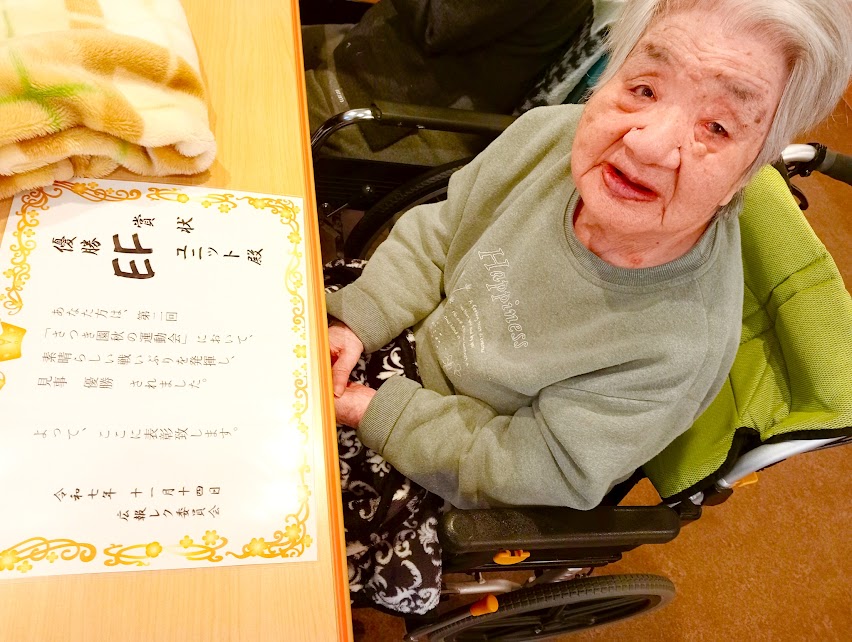 賞状
優勝
EFユニット殿
あなた方は、第二回
「さつき園秋の運動会」において、
素晴らしい戦いぶりを発揮し、
見事 優勝 されました。
よって、ここに表彰致します。
令和七年 十一月十四日
広報レク委員会
Happiness